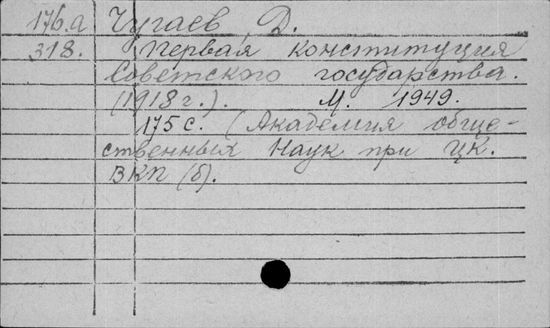 176.а Чугаев, Д.
318. Первая конституция
Советского государства.
(1918 г.). М. 1949.
175 с. (Академия обще-
ственных Наук при ЦК.
ВКП (б).